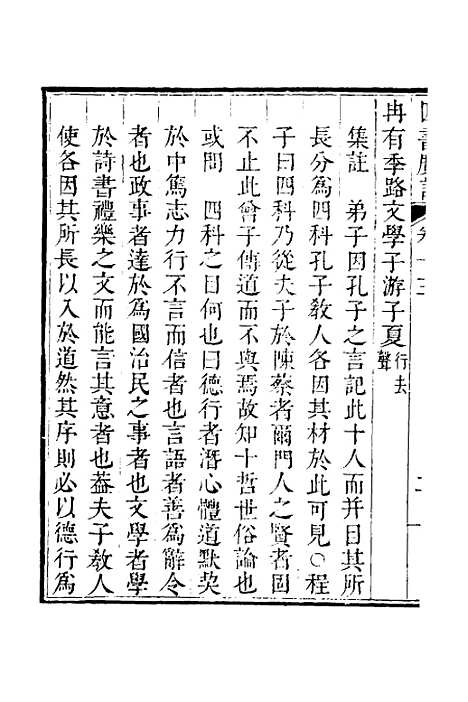 冉有季路文學子游子夏行去聲
集註　弟子因孔子之言記此十人而并目其所
長分爲四科孔子教人各因其材於此可見○程
子曰四科乃從夫子於陳蔡者爾門人之賢者固
不止此曾子傳道而不與焉故知十哲世俗論也
或問　四科之目何也曰德行者潛心體道默契
於中篤志力行不言而信者也言語者善爲辭令
者也政事者達於爲國治民之事者也文學者學
於詩書禮樂之文而能言其意者也葢夫子教人
使各因其所長以入於道然其序則必以德行爲